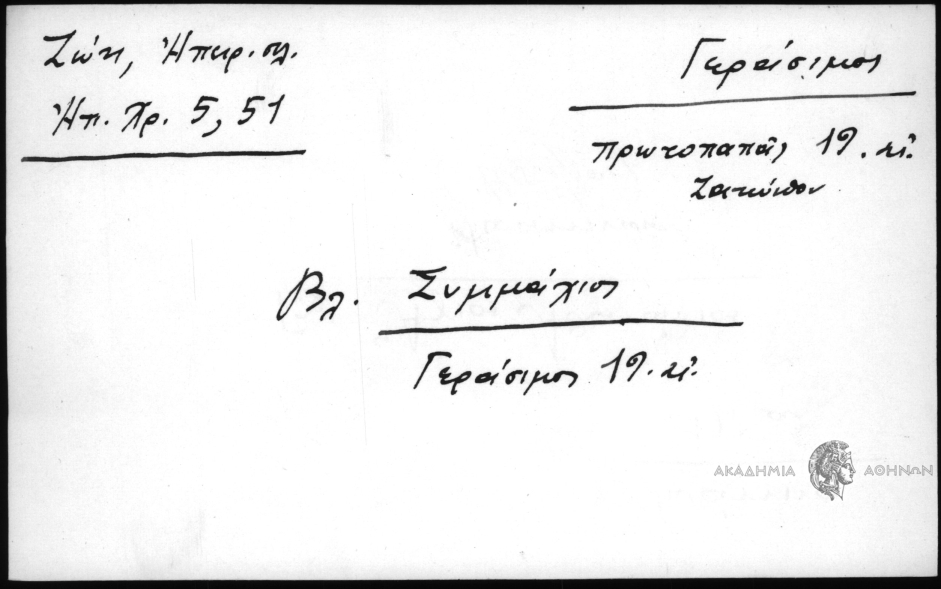 Ζώη, Ἠπειρ. σλ.
Ἠπ. Χρ. 5, 51
Γεράσιμος
πρωτοπαπᾶς 19. αἰ.
Ζακύνθου
Βλ. Συμμάχιος
Γεράσιμος 19. αἰ.
ΑΚΑΔΗΜΙΑ ΑΘΗΝΩΝ